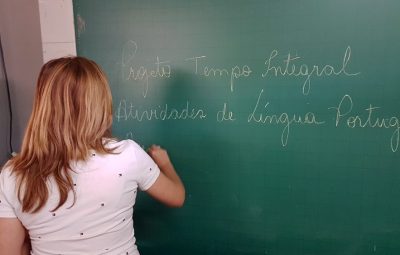 Projeto Tempo Integral
Atividades de Língua Portug